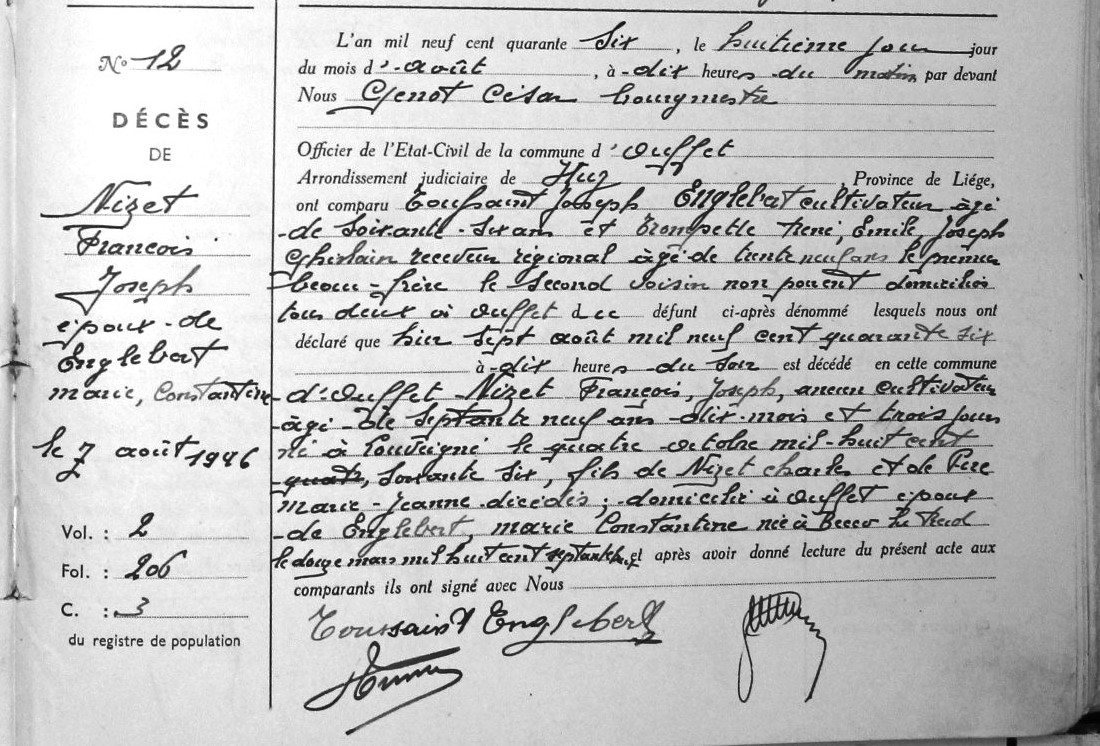 N° 12
DÉCÈS
DE
Nizet
François
Joseph
époux de
Englebert
marie, Constantine
le 7 août 1946
Vol. : 2
Fol. : 206
C. : 3
du registre de population
L'an mil neuf cent quarante six, le huitième jour jour
du mois d'août, à dix heures du matin par devant
Nous Genot César bourgmestre
Officier de l'Etat-Civil de la commune d'Ouffet
Arrondissement judiciaire de Huy, Province de Liége,
ont comparu Toussaint Joseph Englebert cultivateur âgé
de soixante-six ans et Trompette René, Emile, Joseph
Ghislain receveur régional âgé de trente neuf ans le premier
beau-frère le second voisin non parent domiciliés
tous deux à Ouffet du défunt ci-après dénommé lesquels nous ont
déclaré que hier sept août mil neuf cent quarante six
à dix heures du soir est décédé en cette commune
d'Ouffet Nizet François, Joseph, ancien cultivateur
âgé de septante neuf ans dix mois et trois jours
né à Louveigné le quatre octobre mil-huit cent
quatr, soixante six, fils de Nizet Charles et de Pire
marie-Jeanne décédés; domicilié à Ouffet époux
de Englebert, marie Constantine née à Becco La Reid
le douze mars mil huit cent septante et après avoir donné lecture du présent acte aux
comparants ils ont signé avec Nous
Toussaint Englebert